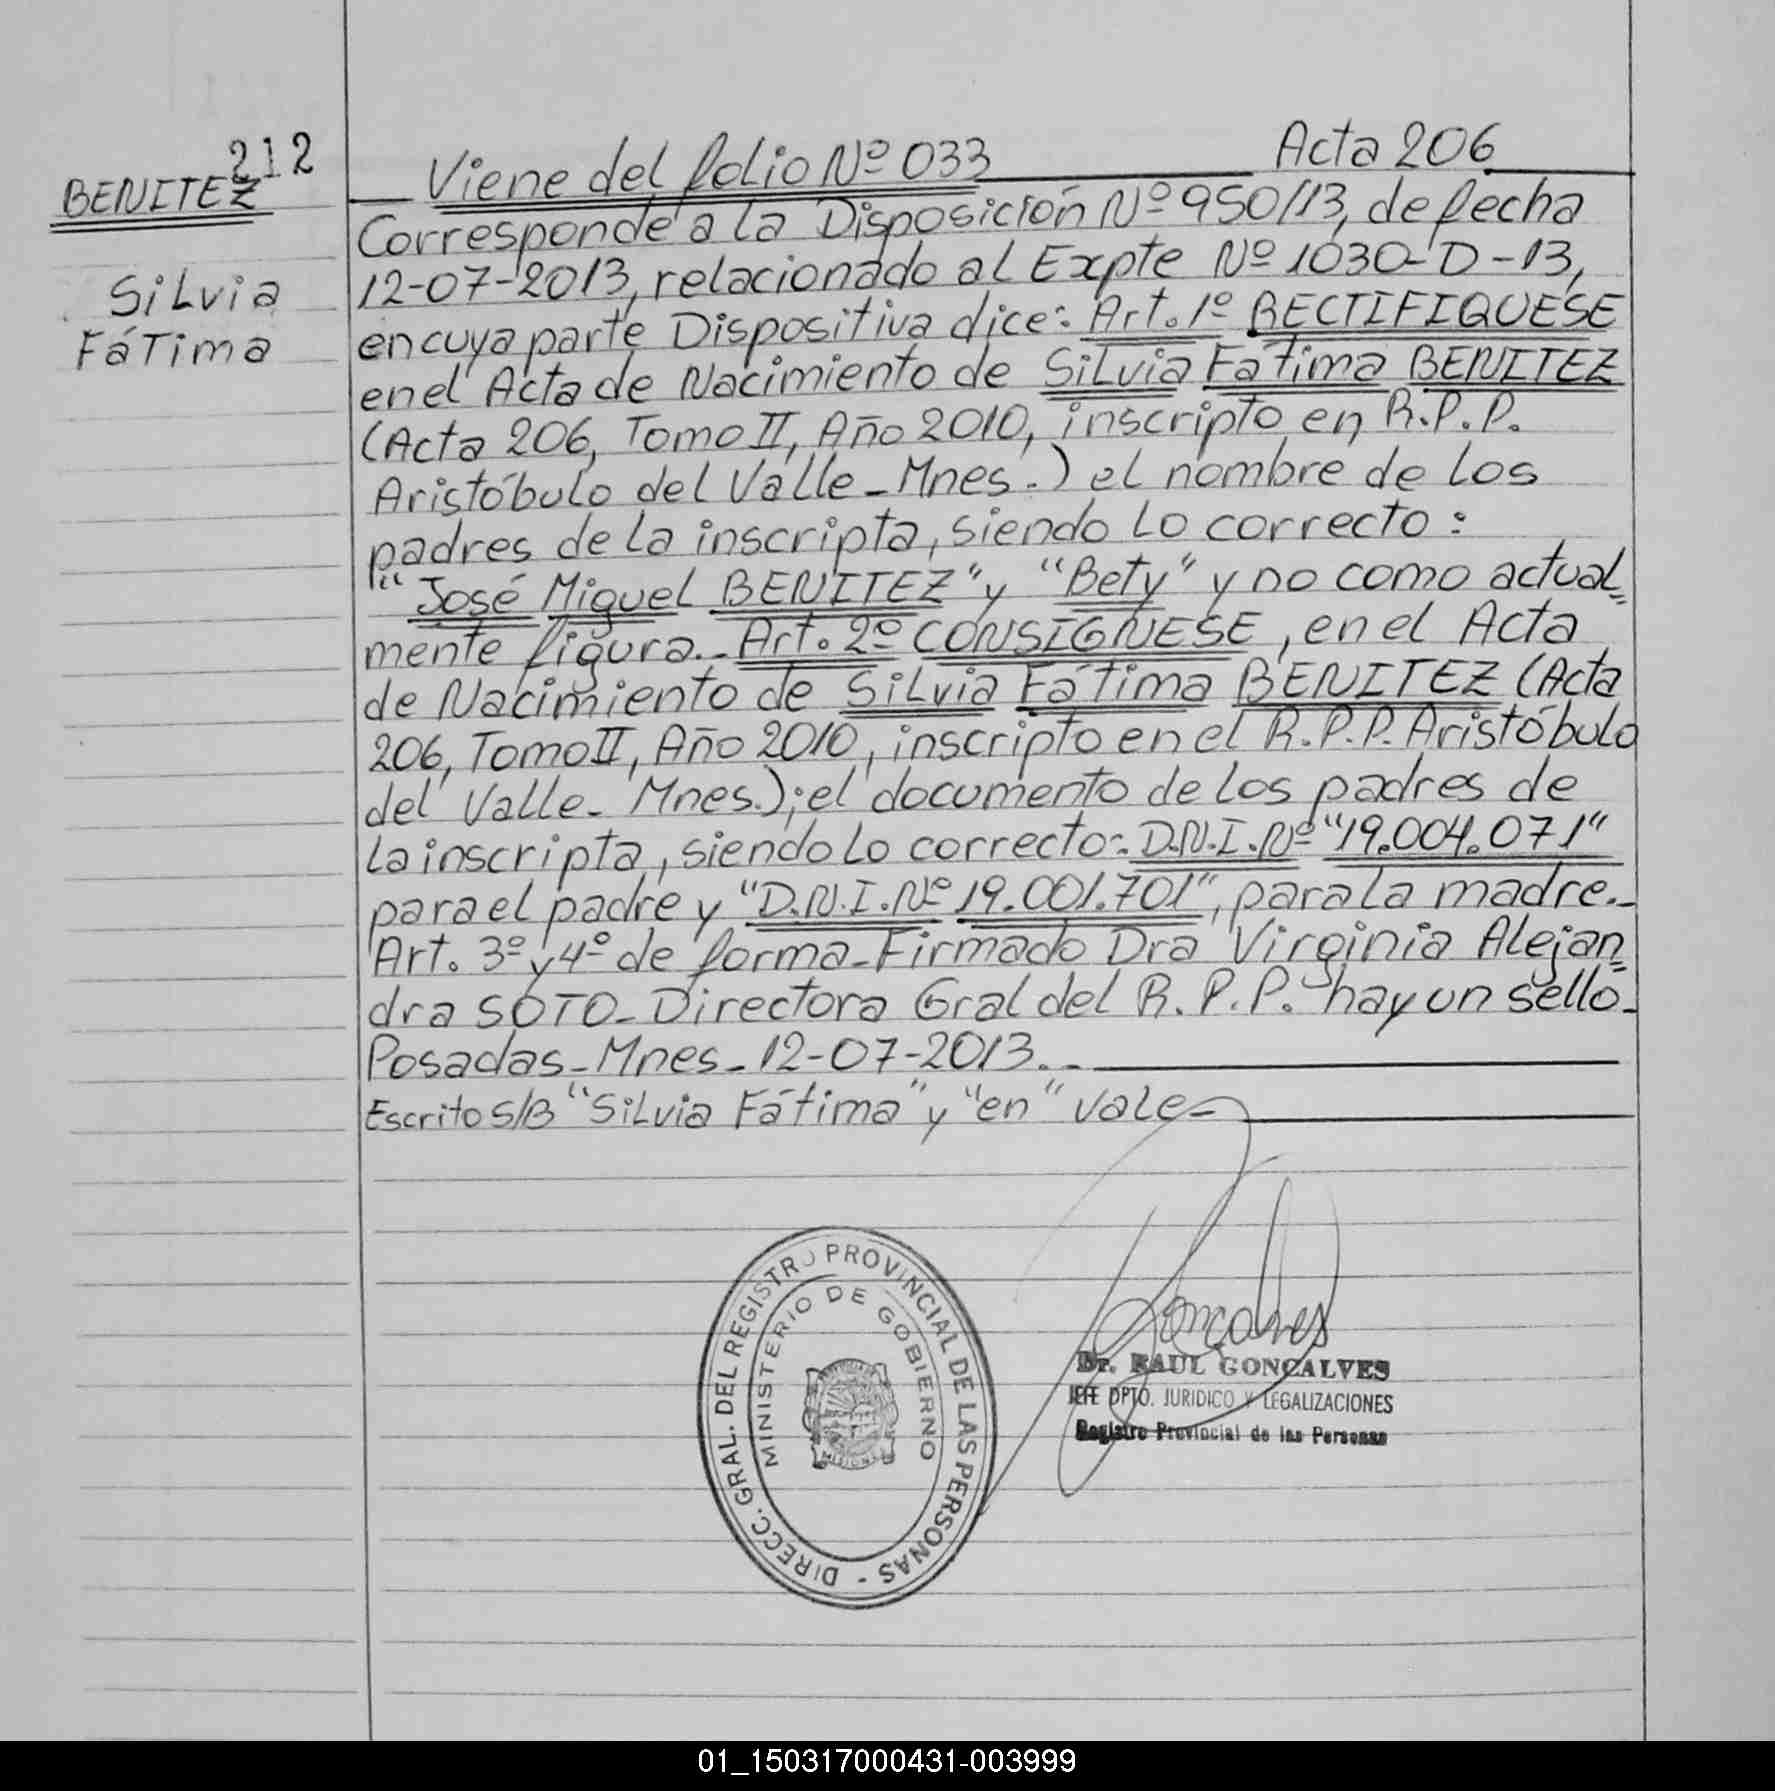 212
BENITEZ
Silvia
Fátima
Viene del folio Nº 033 Acta 206
Corresponde a la Disposición Nº 950/13, de fecha
12-07-2013, relacionado al Expte Nº 1030-D-13,
en cuya parte Dispositiva dice: Art. 1º RECTIFIQUESE
en el Acta de Nacimiento de Silvia Fátima BENITEZ
(Acta 206, Tomo II, Año 2010, inscripto en R.P.P.
Aristóbulo del Valle - Mnes.) el nombre de los
padres de la inscripta, siendo lo correcto:
"José Miguel BENITEZ" y "Bety" y no como actual=
mente figura.- Art. 2º CONSIGNESE, en el Acta
de Nacimiento de Silvia Fátima BENITEZ (Acta
206, Tomo II, Año 2010, inscripto en el R.P.P. Aristóbulo
del Valle - Mnes.); el documento de los padres de
la inscripta, siendo lo correcto: D.N.I. Nº "19.004.071"
para el padre y "D.N.I. Nº 19.001.701", para la madre.-
Art. 3º y 4º de forma - Firmado Dra Virginia Alejan=
dra SOTO - Directora Gral del R.P.P. hay un sello -
Posadas - Mnes - 12-07-2013.-
Escrito S/B "Silvia Fátima" y "en" vale -
DIRECC. GRAL. DEL REGISTRO PROVINCIAL DE LAS PERSONAS -
MINISTERIO DE GOBIERNO
MISIONES
Goncalves
Dr. RAUL GONCALVES
JEFE DPTO. JURIDICO Y LEGALIZACIONES
Registro Provincial de las Personas
01_150317000431-003999